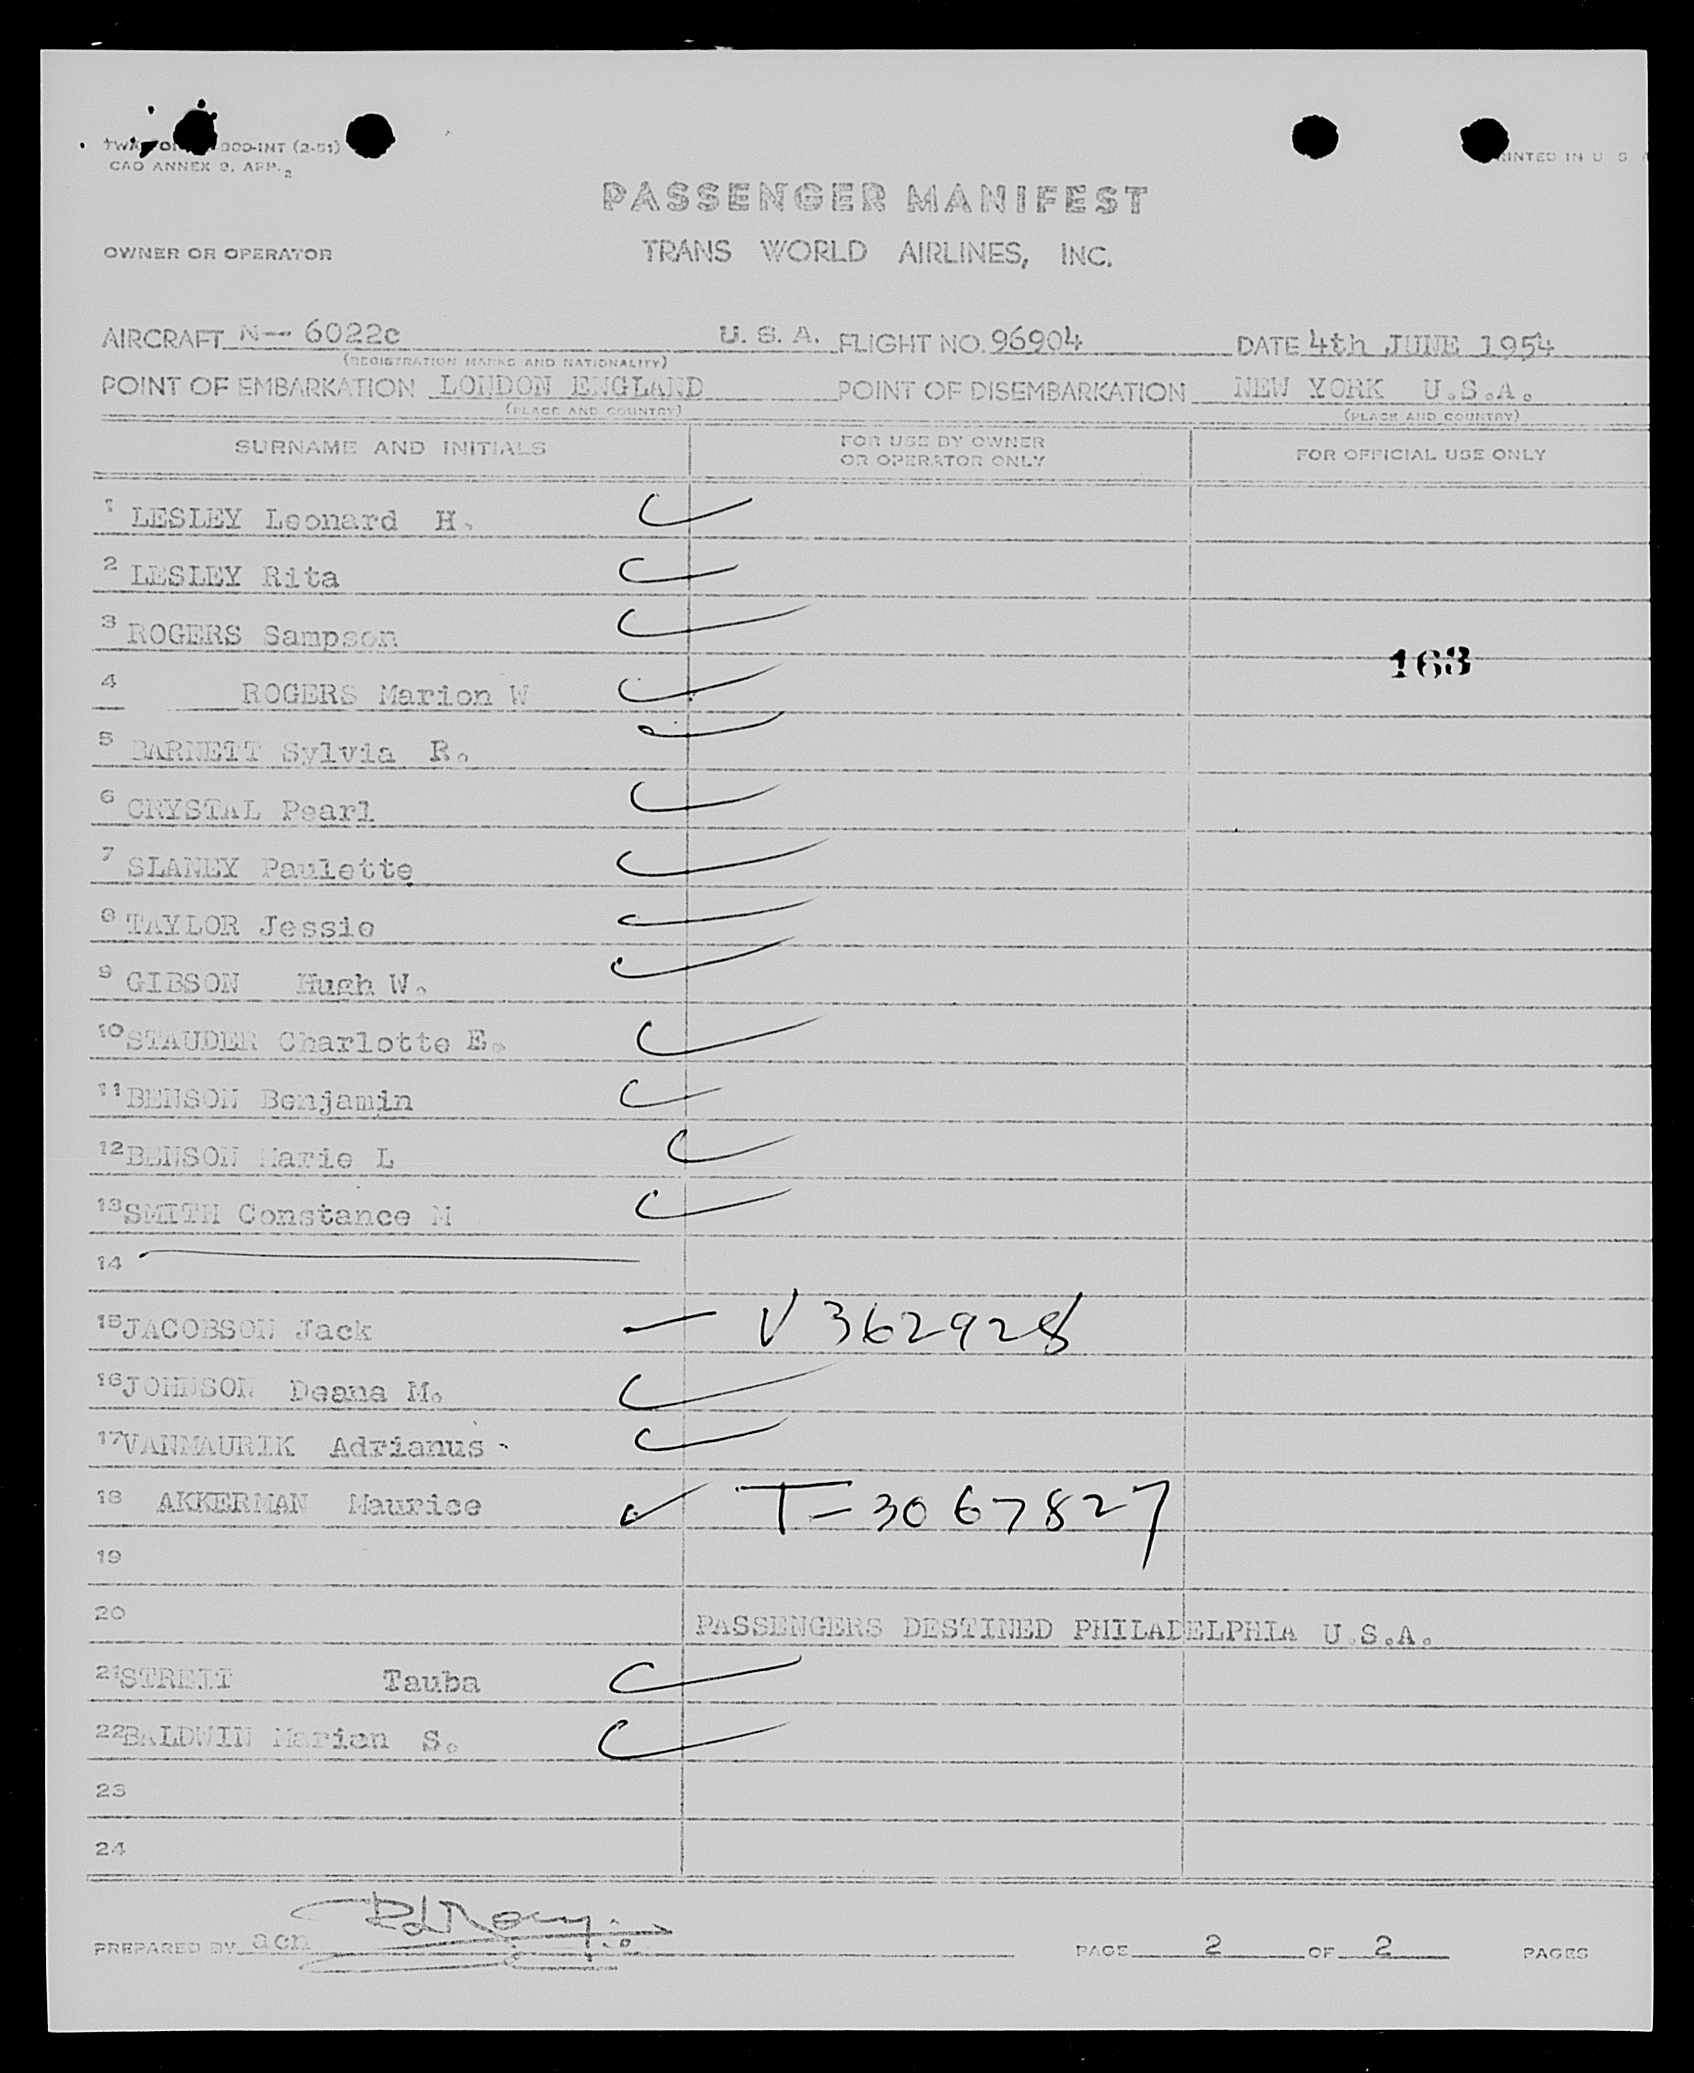 000-INT (2-51)
CAO ANNEX 9, APP. 2
PRINTED IN U S A
PASSENGER MANIFEST
OWNER OR OPERATOR
TRANS WORLD AIRLINES, INC.
AIRCRAFT N— 6022c U. S. A. FLIGHT NO. 96904 DATE 4th JUNE 1954
(REGISTRATION MARKS AND NATIONALITY)
POINT OF EMBARKATION LONDON ENGLAND POINT OF DISEMBARKATION NEW YORK U.S.A.
(PLACE AND COUNTRY) (PLACE AND COUNTRY)
SURNAME AND INITIALS FOR USE BY OWNER OR OPERATOR ONLY FOR OFFICIAL USE ONLY
1 LESLEY Leonard H.
2 LESLEY Rita
3 ROGERS Sampson
163
4 ROGERS Marion W
5 BARNETT Sylvia R.
6 CRYSTAL Pearl
7 SLANEY Paulette
8 TAYLOR Jessie
9 GIBSON Hugh W.
10 STAUDER Charlotte E.
11 BENSON Benjamin
12 BENSON Marie L
13 SMITH Constance M
14
15 JACOBSON Jack — V 362928
16 JOHNSON Deana M.
17 VANMAURIK Adrianus
18 AKKERMAN Maurice ✓ T-3067827
19
20 PASSENGERS DESTINED PHILADELPHIA U.S.A.
21 STREIT Tauba
22 BALDWIN Marian S.
23
24
PREPARED BY acn PAGE 2 OF 2 PAGES